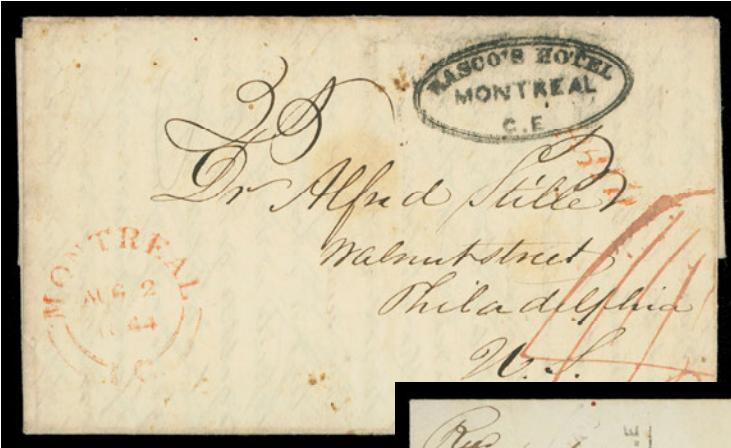 RASCO'S HOTEL
MONTREAL
C.E
Dr Alfred Stillé
Walnut street
Philadelphia
U.S.
MONTREAL
AUG 2
1844
L.C.